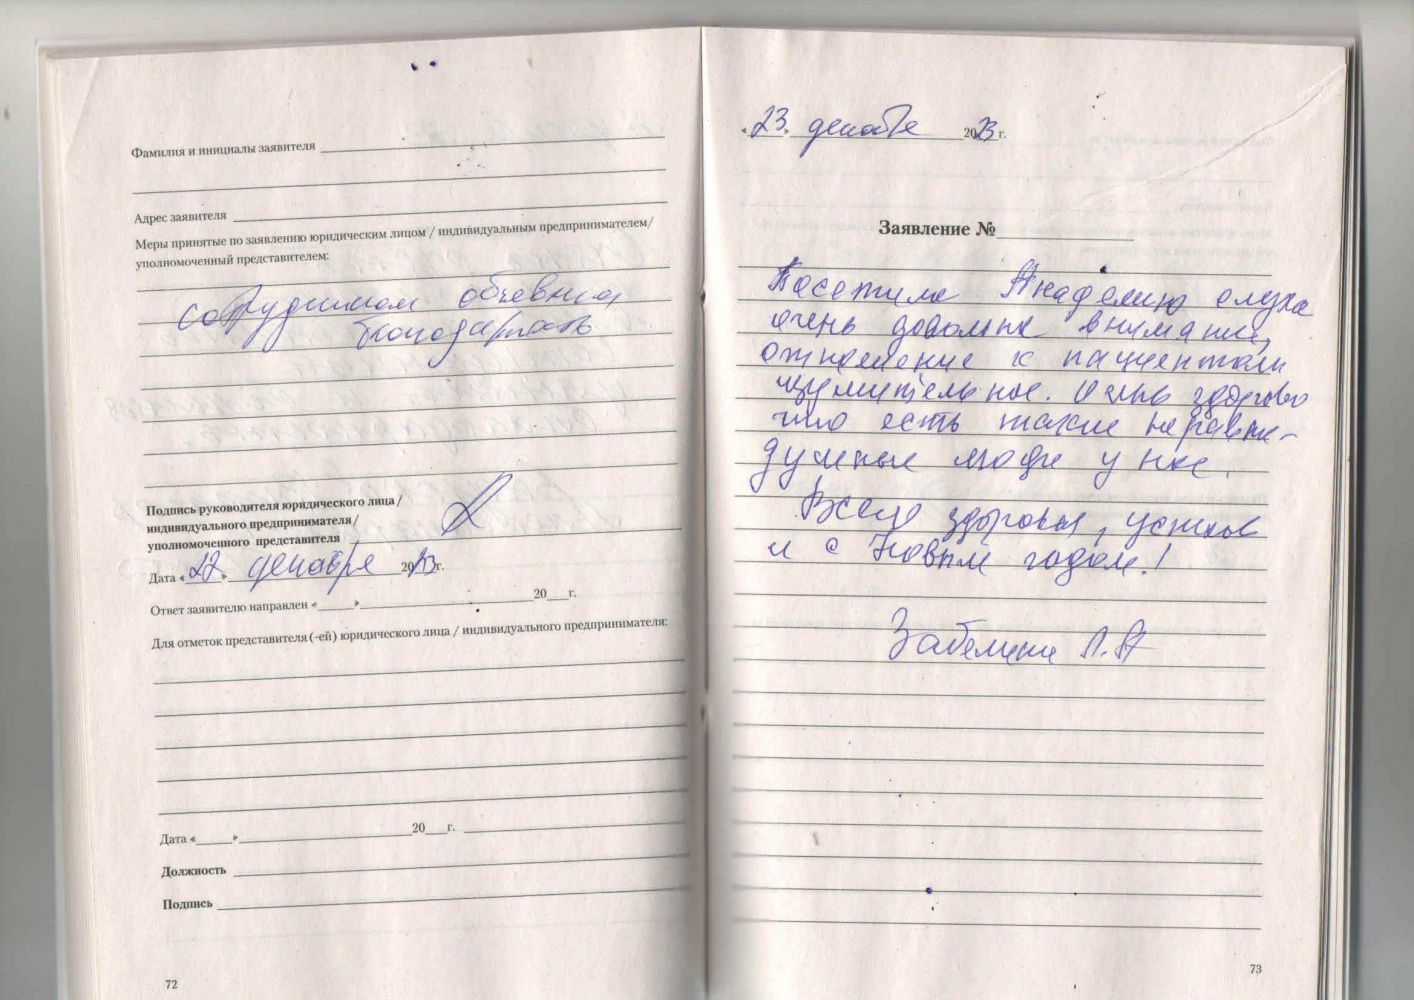 Фамилия и инициалы заявителя
Адрес заявителя
Меры принятые по заявлению юридическим лицом / индивидуальным предпринимателем/
уполномоченный представителем:
сотрудникам объявлена
благодарность
Подпись руководителя юридического лица /
индивидуального предпринимателя/
уполномоченного представителя
Дата «22» декабря 2023г.
Ответ заявителю направлен «____»____20___г.
Для отметок представителя (-ей) юридического лица / индивидуального предпринимателя:
Дата «____»____20___г.
Должность
Подпись
72
«23» декабря 2023 г.
Заявление №
Посетила Академию слуха
очень довольна внимание,
отношение к пациентам
изумительное. Очень здорово
что есть такие неравно-
душные люди у нас.
Всем здоровья, успехов
и с Новым годом!
Забелина Л.А
73